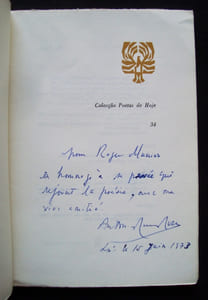 Colecção Poetas de Hoje
34
pour Roger Munier
en hommage à sa pensée qui
rejoint la poésie, avec ma
vive amitié
António Ramos Rosa
le 15 juin 1978